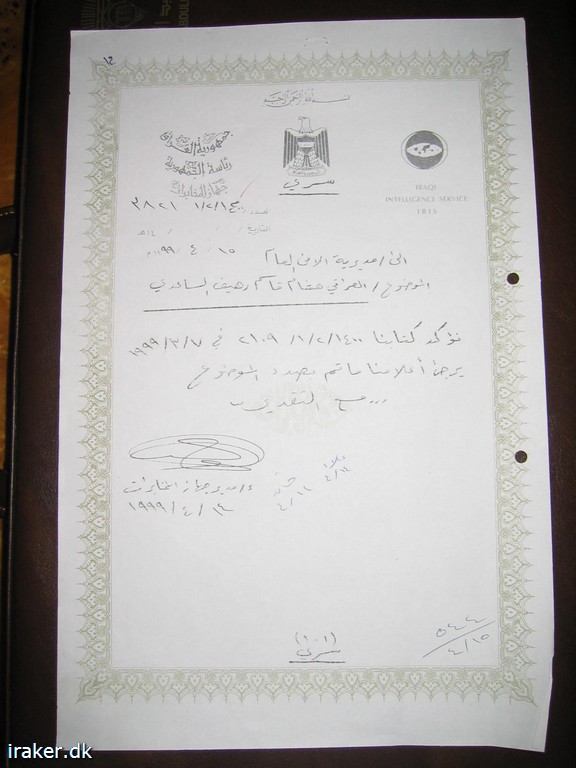 ١٢
بسم الله الرحمن الرحيم
جمهورية العراق
رئاسة الجمهورية
جهاز المخابرات
سري
IRAQI
INTELLIGENCE SERVICE
IRIS
العدد / ١/٢/١٤٠٠ / ٣٨٢١
التاريخ / / ١٤هـ
١٥ / ٤ / ١٩٩٩م
الى / مديرية الامن العام
الموضوع / العراقي هشام قاسم رهيف الساعدي
نؤكد كتابنا ١/٢/١٤٠٠/ ٢١٠٩ في ١٩٩٩/٣/٧
يرجى أعلامنا ماتم بصدد الموضوع
... مع التقدير
ع/مدير جهاز المخابرات
١٩٩٩/٤/١٤
٤/١٤
٤/١١
(١-١)
سري
٥٤٤
٤/١٥
iraker.dk